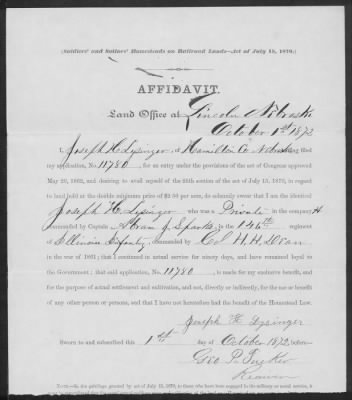 (Soldiers' and Sailors' Homesteads on Railroad Lands—Act of July 15, 1870.)
AFFIDAVIT.
Land Office at Lincoln Nebraska
October 1st 1872
I, Joseph H. Lysinger, of Hamilton Co Nebraska filed
my application, No. 11780, for an entry under the provisions of the act of Congress approved
May 20, 1862, and desiring to avail myself of the 25th section of the act of July 15, 1870, in regard
to land held at the double minimum price of $2 50 per acre, do solemnly swear that I am the identical
Joseph H. Lysinger who was a Private in the company H
commanded by Captain Abram J. Sparks, in the 146th regiment
of Illinois Infantry, commanded by Col H. H. Dean
in the war of 1861; that I continued in actual service for ninety days, and have remained loyal to
the Government; that said application, No. 11780, is made for my exclusive benefit, and
for the purpose of actual settlement and cultivation, and not, directly or indirectly, for the use or benefit of
any other person or persons, and that I have not heretofore had the benefit of the Homestead Law.
Joseph H. Lysinger
Sworn to and subscribed this 1st day of October 1872, before
Geo P. Tucker
Receiver
NOTE.—As the privilege granted by act of July 15, 1870, to those who have been engaged in the military or naval service, is